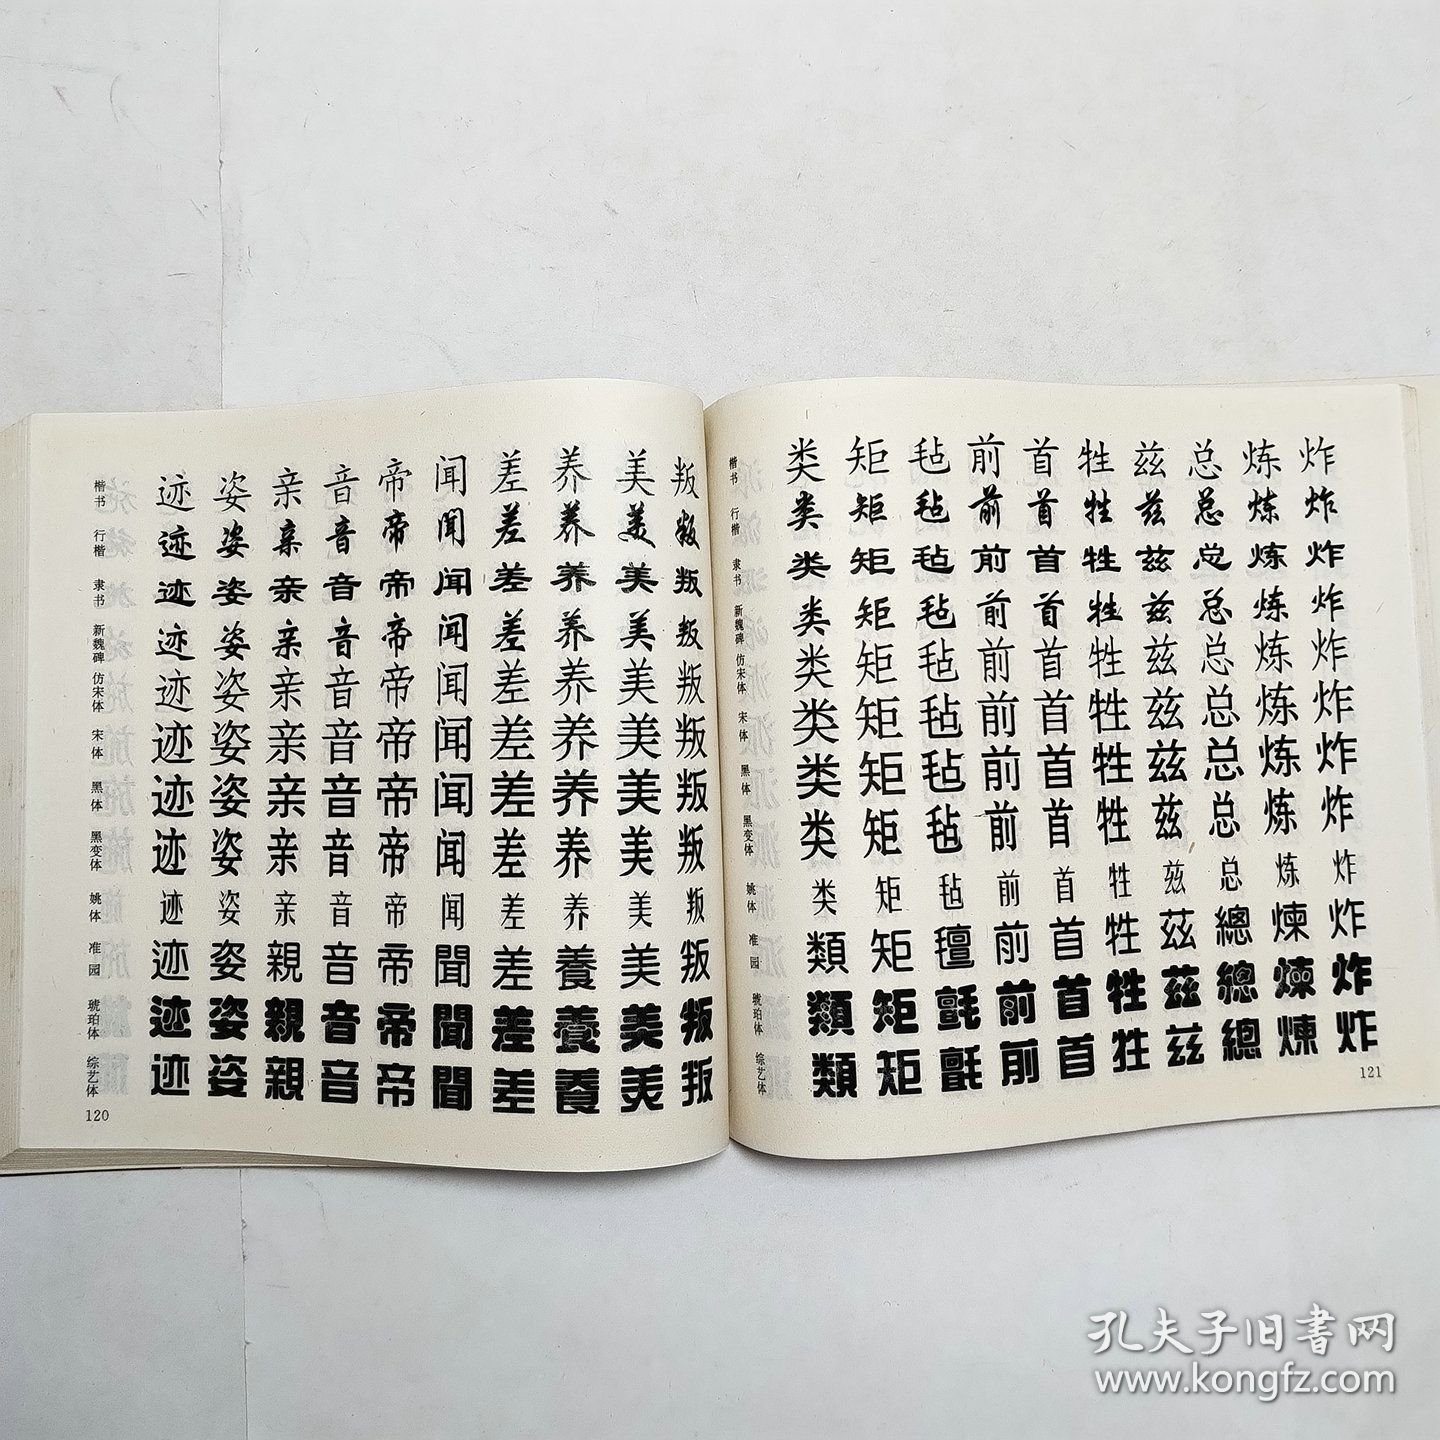 楷书 迹 姿 亲 音 帝 闻 差 养 美 叛
行楷 迹 姿 亲 音 帝 闻 差 养 美 叛
隶书 迹 姿 亲 音 帝 闻 差 养 美 叛
新魏碑 迹 姿 亲 音 帝 闻 差 养 美 叛
仿宋体 迹 姿 亲 音 帝 闻 差 养 美 叛
宋体 迹 姿 亲 音 帝 闻 差 养 美 叛
黑体 迹 姿 亲 音 帝 闻 差 养 美 叛
黑变体 迹 姿 亲 音 帝 闻 差 养 美 叛
姚体 迹 姿 亲 音 帝 闻 差 养 美 叛
准园 迹 姿 親 音 帝 聞 差 養 美 叛
琥珀体 迹 姿 親 音 帝 聞 差 養 美 叛
综艺体 迹 姿 親 音 帝 聞 差 養 美 叛
120
楷书 类 矩 毡 前 首 牲 兹 总 炼 炸
行楷 类 矩 毡 前 首 牲 兹 总 炼 炸
隶书 类 矩 毡 前 首 牲 兹 总 炼 炸
新魏碑 类 矩 毡 前 首 牲 兹 总 炼 炸
仿宋体 类 矩 毡 前 首 牲 兹 总 炼 炸
宋体 类 矩 毡 前 首 牲 兹 总 炼 炸
黑体 类 矩 毡 前 首 牲 兹 总 炼 炸
黑变体 类 矩 毡 前 首 牲 兹 总 炼 炸
姚体 类 矩 毡 前 首 牲 兹 总 炼 炸
准园 類 矩 氊 前 首 牲 茲 總 煉 炸
琥珀体 類 矩 氈 前 首 牲 茲 總 煉 炸
综艺体 類 矩 氈 前 首 牲 茲 總 煉 炸
121
孔夫子旧書网
www.kongfz.com